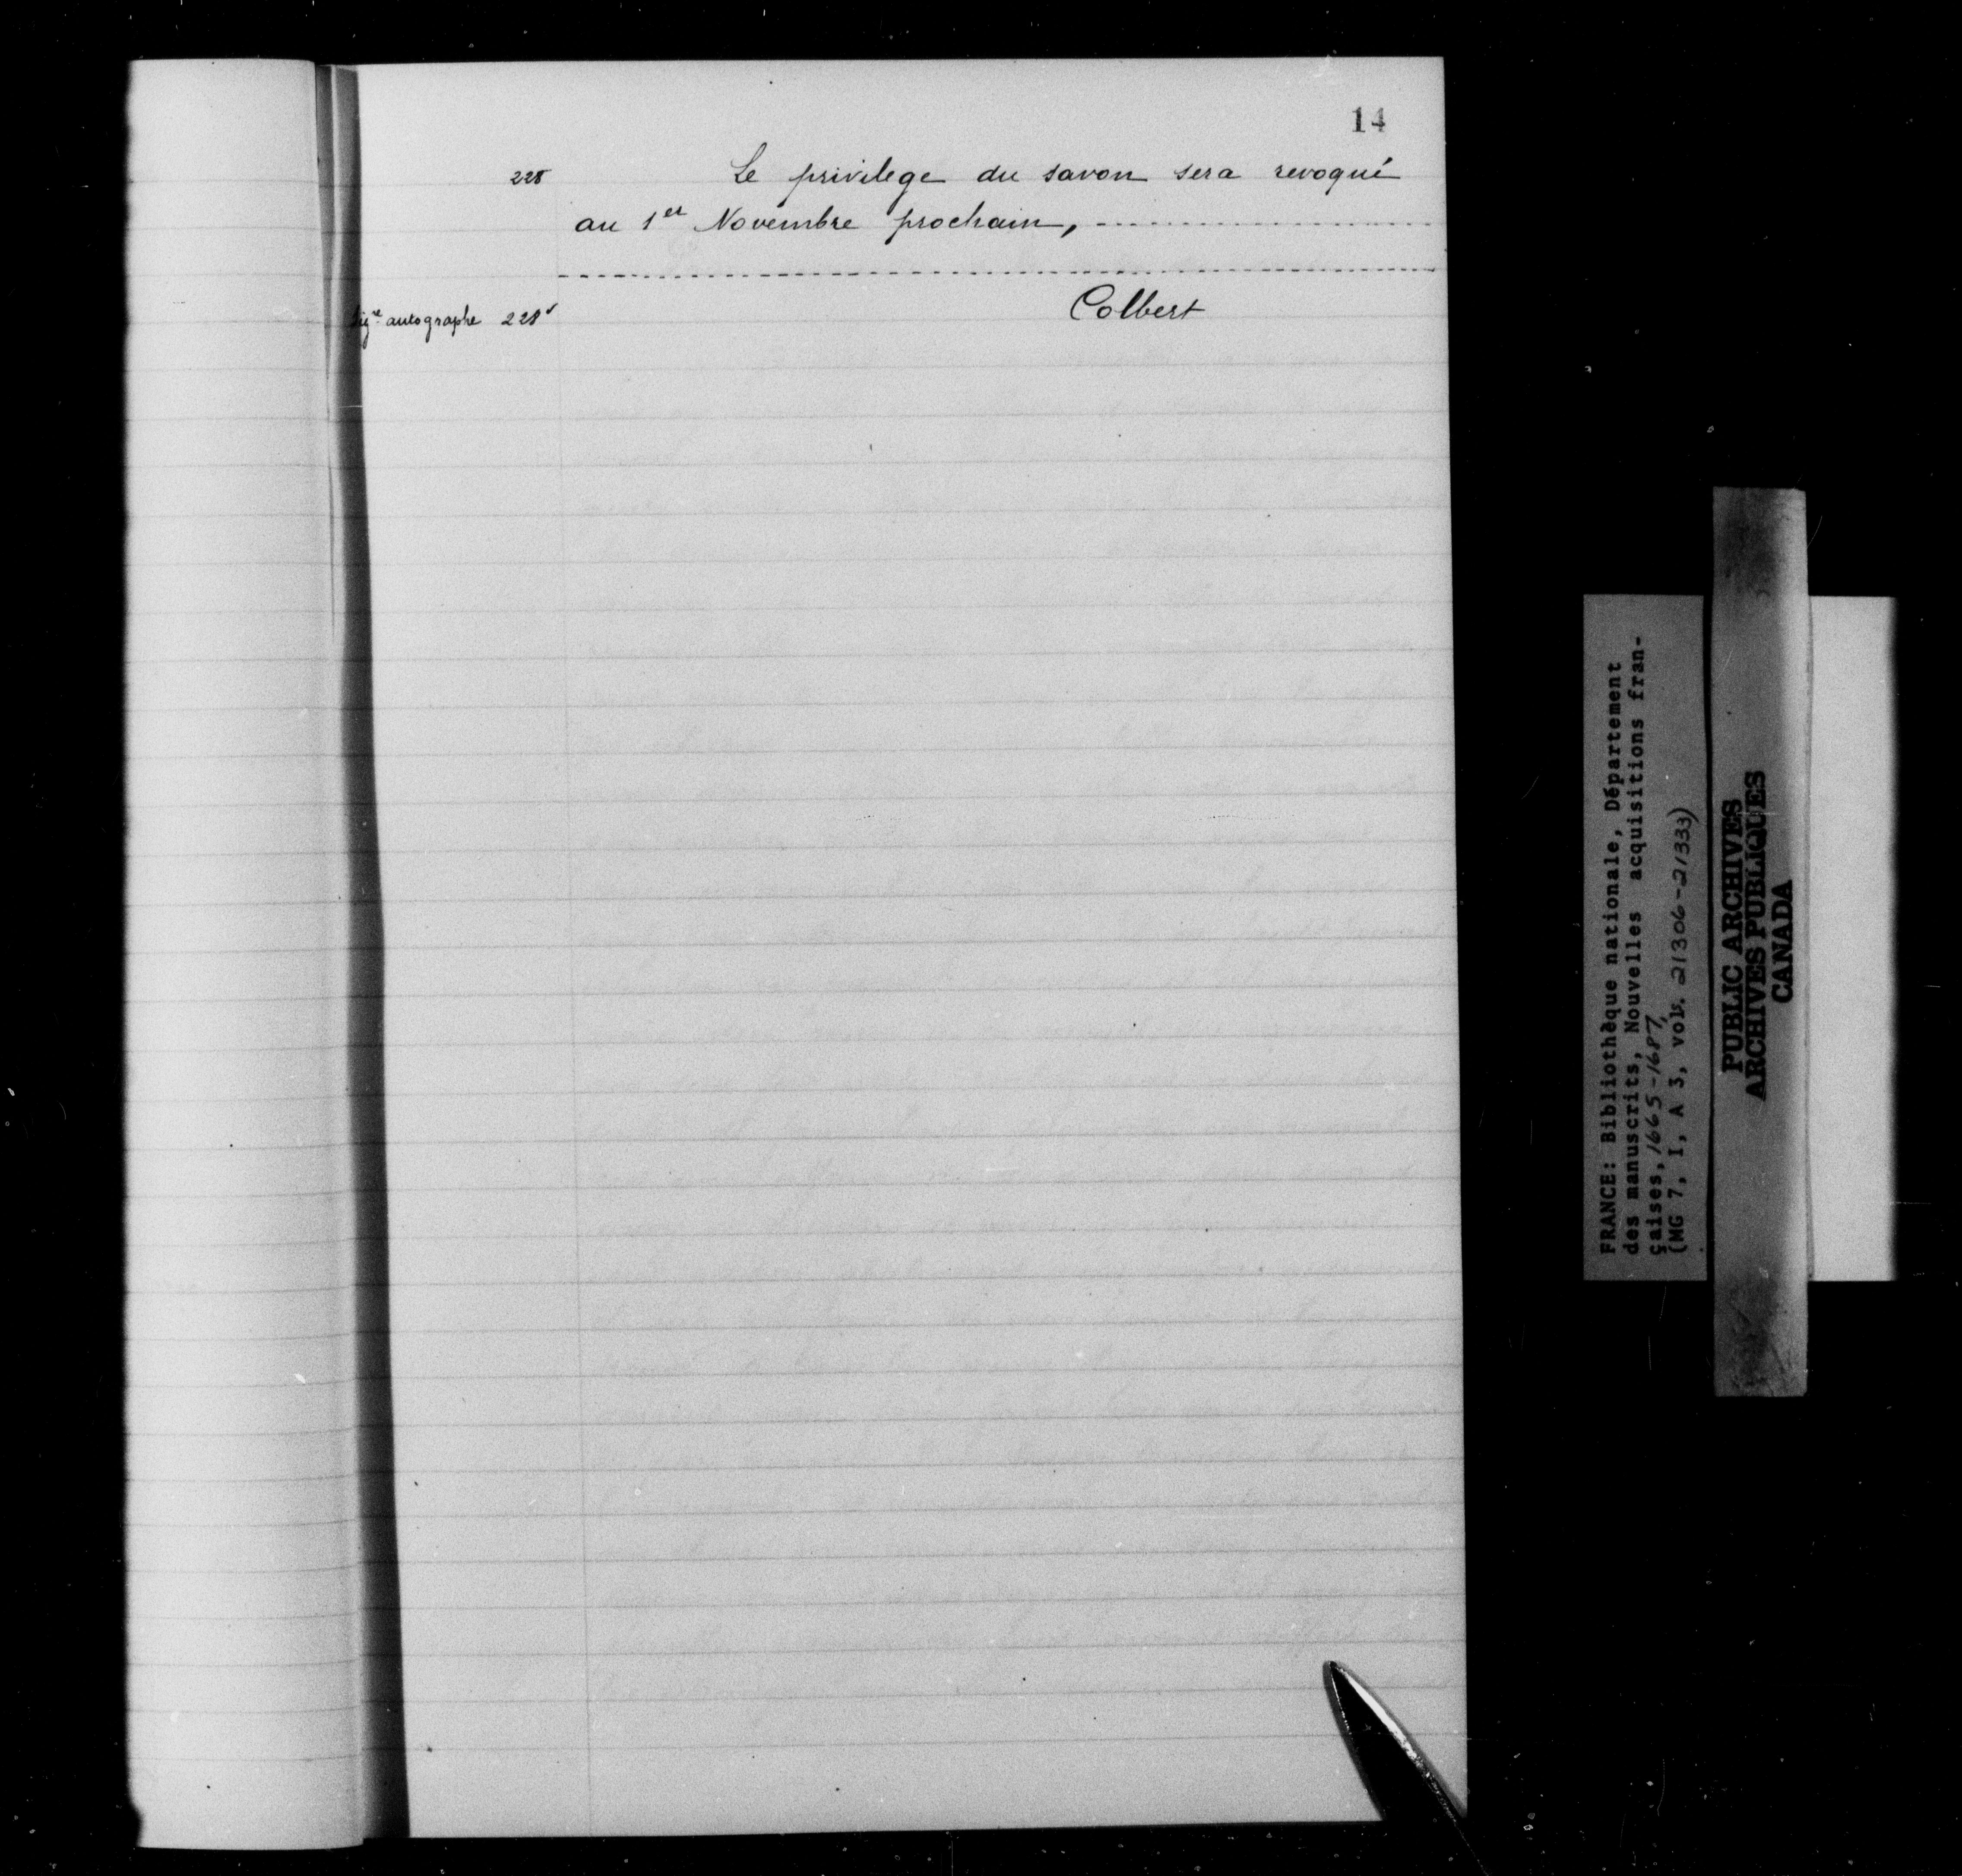 14
228 Le privilege du savon sera revoqué
au 1er Novembre prochain,
Sigé autographe 228v Colbert
FRANCE: Bibliothèque nationale, Département
des manuscrits, Nouvelles acquisitions fran-
çaises, 1665-1687,
(MG 7, I, A 3, vols. 21306-21333)
PUBLIC ARCHIVES
ARCHIVES PUBLIQUES
CANADA